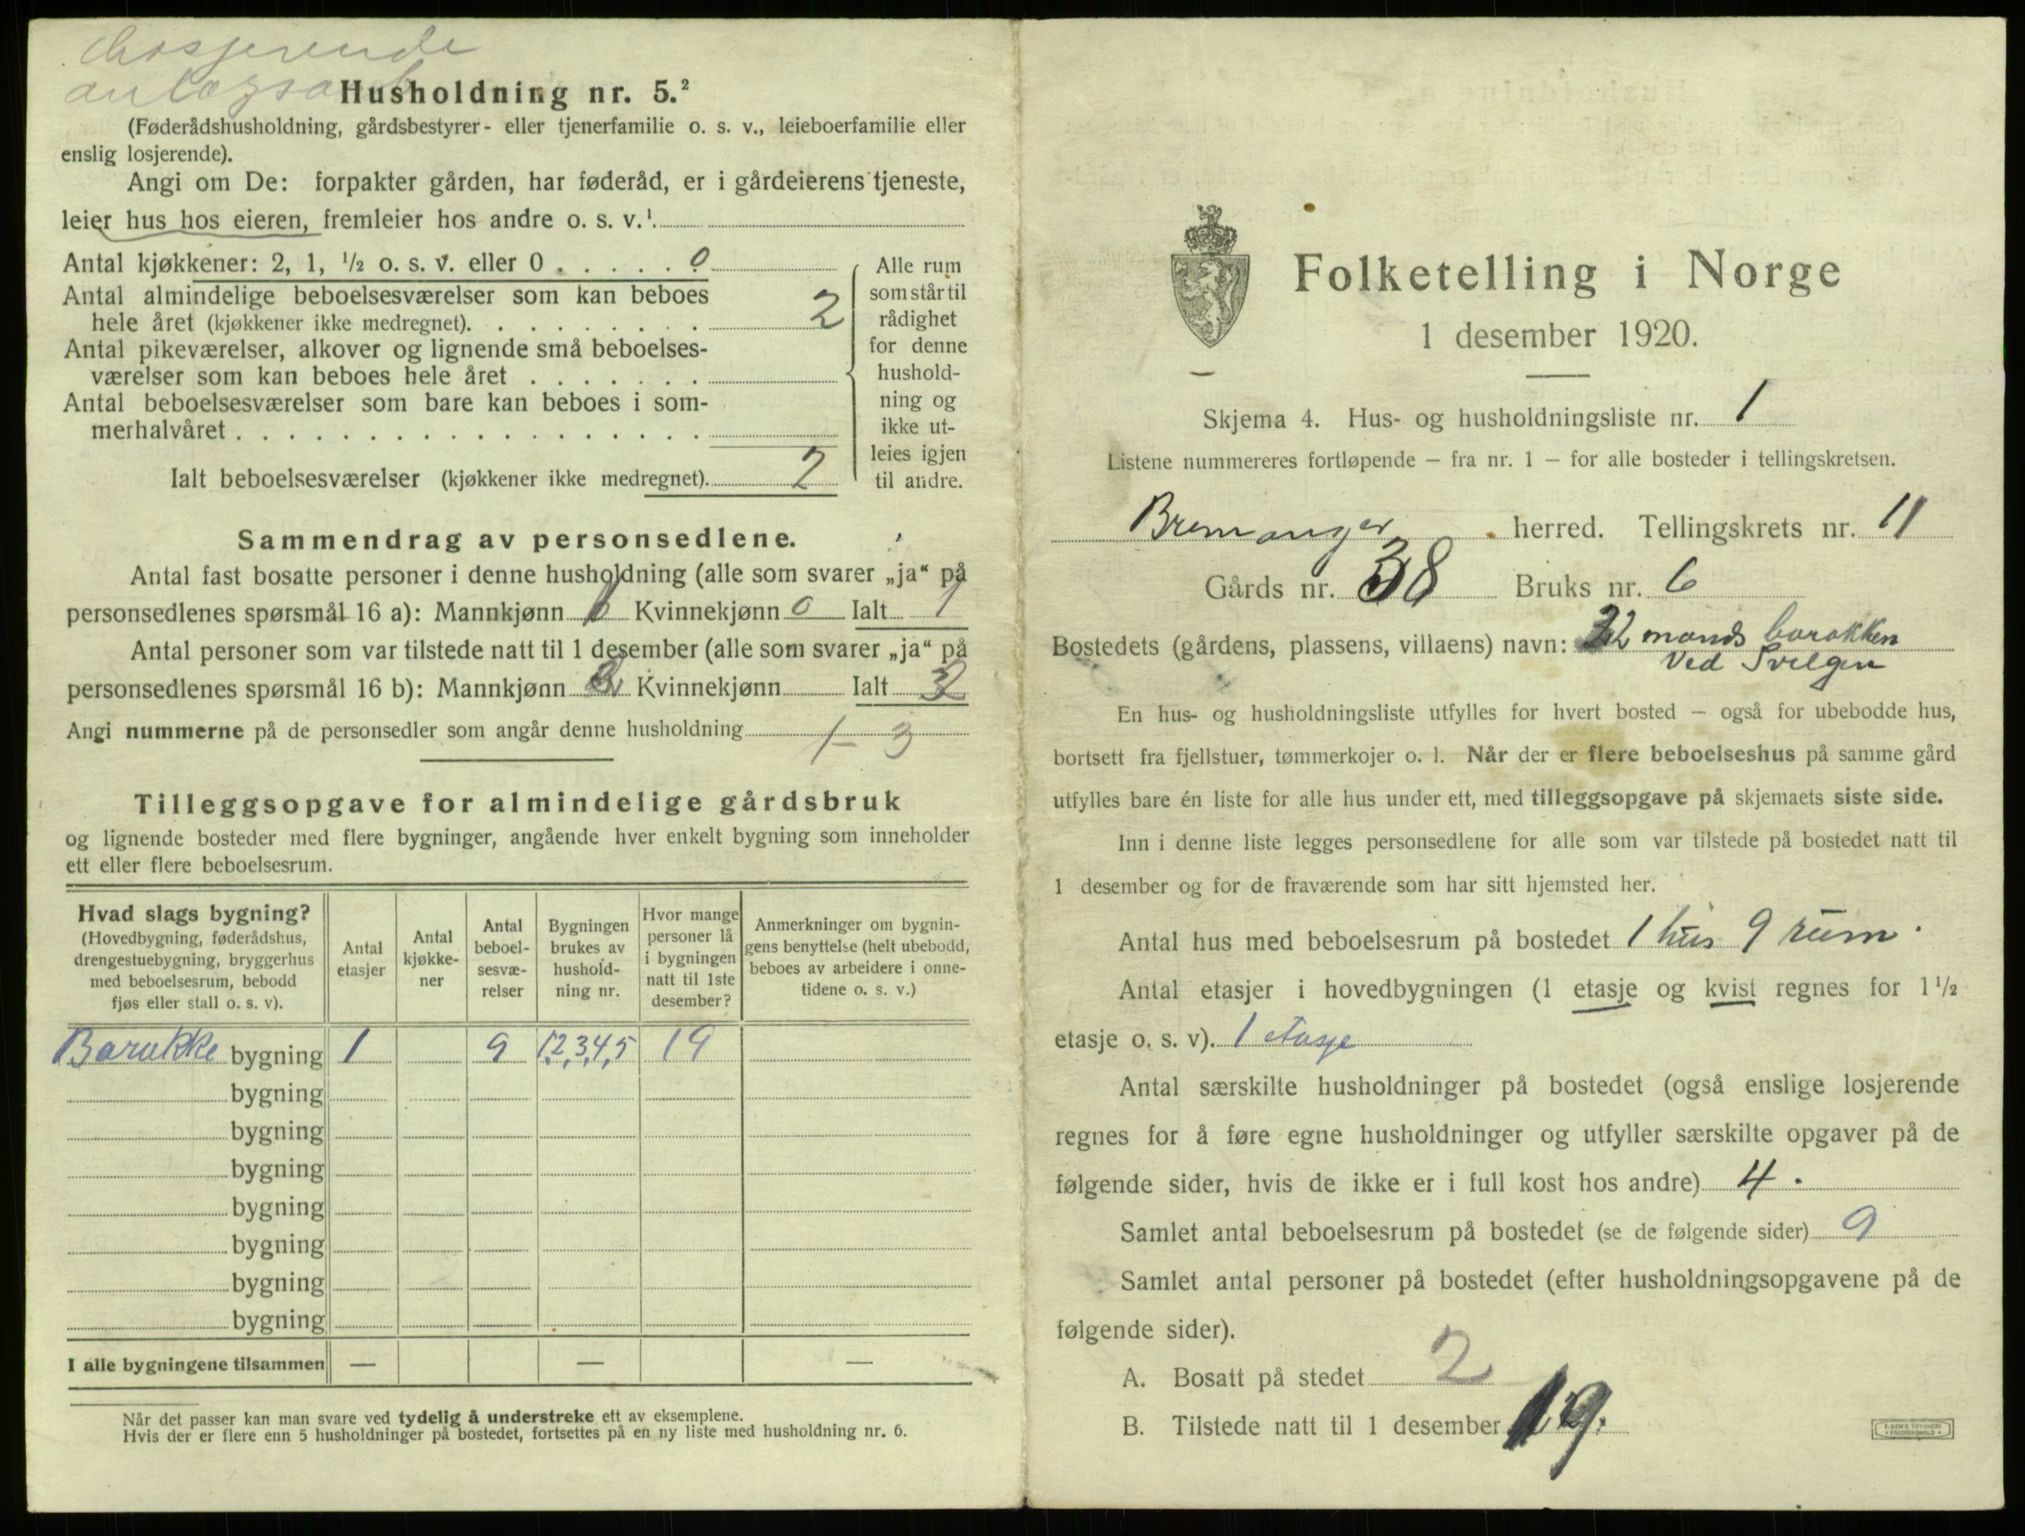 Losjerende
anlægsarb
Husholdning nr. 5.²
(Føderådshusholdning, gårdsbestyrer- eller tjenerfamilie o. s. v., leieboerfamilie eller
enslig losjerende).
Angi om De: forpakter gården, har føderåd, er i gårdeierens tjeneste,
leier hus hos eieren, fremleier hos andre o. s. v.¹
Antal kjøkkener: 2, 1, ½ o. s. v. eller 0 . . . . . 0
Antal almindelige beboelsesværelser som kan beboes
hele året (kjøkkener ikke medregnet). . . . . . . . . 2
Antal pikeværelser, alkover og lignende små beboelses-
værelser som kan beboes hele året . . . . . . .
Antal beboelsesværelser som bare kan beboes i som-
merhalvåret . . . . . . . . . . . . . . . . . .
Ialt beboelsesværelser (kjøkkener ikke medregnet). 2
Alle rum
som står til
rådighet
for denne
hushold-
ning og
ikke ut-
leies igjen
til andre.
Sammendrag av personsedlene.
Antal fast bosatte personer i denne husholdning (alle som svarer „ja“ på
personsedlenes spørsmål 16 a): Mannkjønn Kvinnekjønn 0 Ialt 1
Antal personer som var tilstede natt til 1 desember (alle som svarer „ja“ på
personsedlenes spørsmål 16 b): Mannkjønn Kvinnekjønn Ialt
Angi nummerne på de personsedler som angår denne husholdning 1-3
Tilleggsopgave for almindelige gårdsbruk
og lignende bosteder med flere bygninger, angående hver enkelt bygning som inneholder
ett eller flere beboelsesrum.
Hvad slags bygning?
(Hovedbygning, føderådshus,
drengestuebygning, bryggerhus
med beboelsesrum, bebodd
fjøs eller stall o. s. v).
Antal
etasjer
Antal
kjøkke-
ner
Antal
beboel-
sesvæ-
relser
Bygningen
brukes av
hushold-
ning nr.
Hvor mange
personer lå
i bygningen
natt til 1ste
desember?
Anmerkninger om bygnin-
gens benyttelse (helt ubebodd,
beboes av arbeidere i onne-
tidene o. s. v.)
Barakke bygning 1 9 1,2,3,4,5 19
bygning
bygning
bygning
bygning
bygning
bygning
bygning
I alle bygningene tilsammen — — —
Når det passer kan man svare ved tydelig å understreke ett av eksemplene.
Hvis der er flere enn 5 husholdninger på bostedet, fortsettes på en ny liste med husholdning nr. 6.
Folketelling i Norge
1 desember 1920.
Skjema 4. Hus- og husholdningsliste nr. 1
Listene nummereres fortløpende – fra nr. 1 – for alle bosteder i tellingskretsen.
Bremanger herred. Tellingskrets nr. 11
Gårds nr. 38 Bruks nr. 6
Bostedets (gårdens, plassens, villaens) navn: 32 mands barakken
Ved Svelgen
En hus- og husholdningsliste utfylles for hvert bosted – også for ubebodde hus,
bortsett fra fjellstuer, tømmerkojer o. l. Når der er flere beboelseshus på samme gård
utfylles bare én liste for alle hus under ett, med tilleggsopgave på skjemaets siste side.
Inn i denne liste legges personsedlene for alle som var tilstede på bostedet natt til
1 desember og for de fraværende som har sitt hjemsted her.
Antal hus med beboelsesrum på bostedet 1 hus 9 rum.
Antal etasjer i hovedbygningen (1 etasje og kvist regnes for 1½
etasje o. s. v). 1 etasje
Antal særskilte husholdninger på bostedet (også enslige losjerende
regnes for å føre egne husholdninger og utfyller særskilte opgaver på de
følgende sider, hvis de ikke er i full kost hos andre) 4.
Samlet antal beboelsesrum på bostedet (se de følgende sider) 9
Samlet antal personer på bostedet (efter husholdningsopgavene på de
følgende sider).
A. Bosatt på stedet 2
B. Tilstede natt til 1 desember 19.